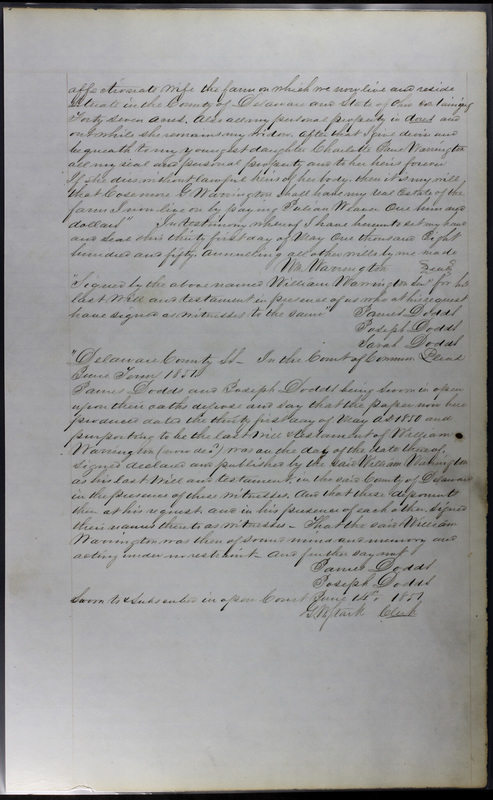 affectionate wife the farm on which we now live and reside
Situate in the County of Delaware and State of Ohio Containing
Forty seven acres. Also all my personal property in deed and
only while she remains my widow after that I give devise and
bequeath to my youngest daughter Charlotte Warrington
all my real and personal property and to her heirs forever
If she dies without lawful heirs of her body, then it is my will
that Warrington shall have my real Estate of the
farm I now live on by paying Weaver One hundred
dollars" In testimony whereof I have hereunto set my hand
and seal this thirty first day of May One thousand Eight
hundred and fifty annulling all other wills by me made
Wm Warrington Seal
"Signed by the above named William Warrington for his
last Will and testament in presence of us who at his request
have signed as witnesses to the same" James Dodds
Joseph Dodds
Sarah Dodds
"Delaware County Ss- In the Court of Common Pleas
June Term 1851
James Dodds and Joseph Dodds being sworn in open
upon their oaths depose and say that the paper now here
produced dated the thirty first day of May AD 1850 and
purporting to be the last Will & testament of William
Warrington (now decd) was on the day of the date thereof,
signed declared and published by the said William Warrington
as his last Will and testament, in the said County of Delaware
in the presence of these witnesses. And that these deponents
then at his request and in his presence of each other signed
their names thereto as witnesses - That the said William
Warrington was then of sound mind and memory and
acting under no restraint - And further say not
James Dodds
Joseph Dodds
Sworn to & subscribed in open Court June 14th 1851
Stark Clerk